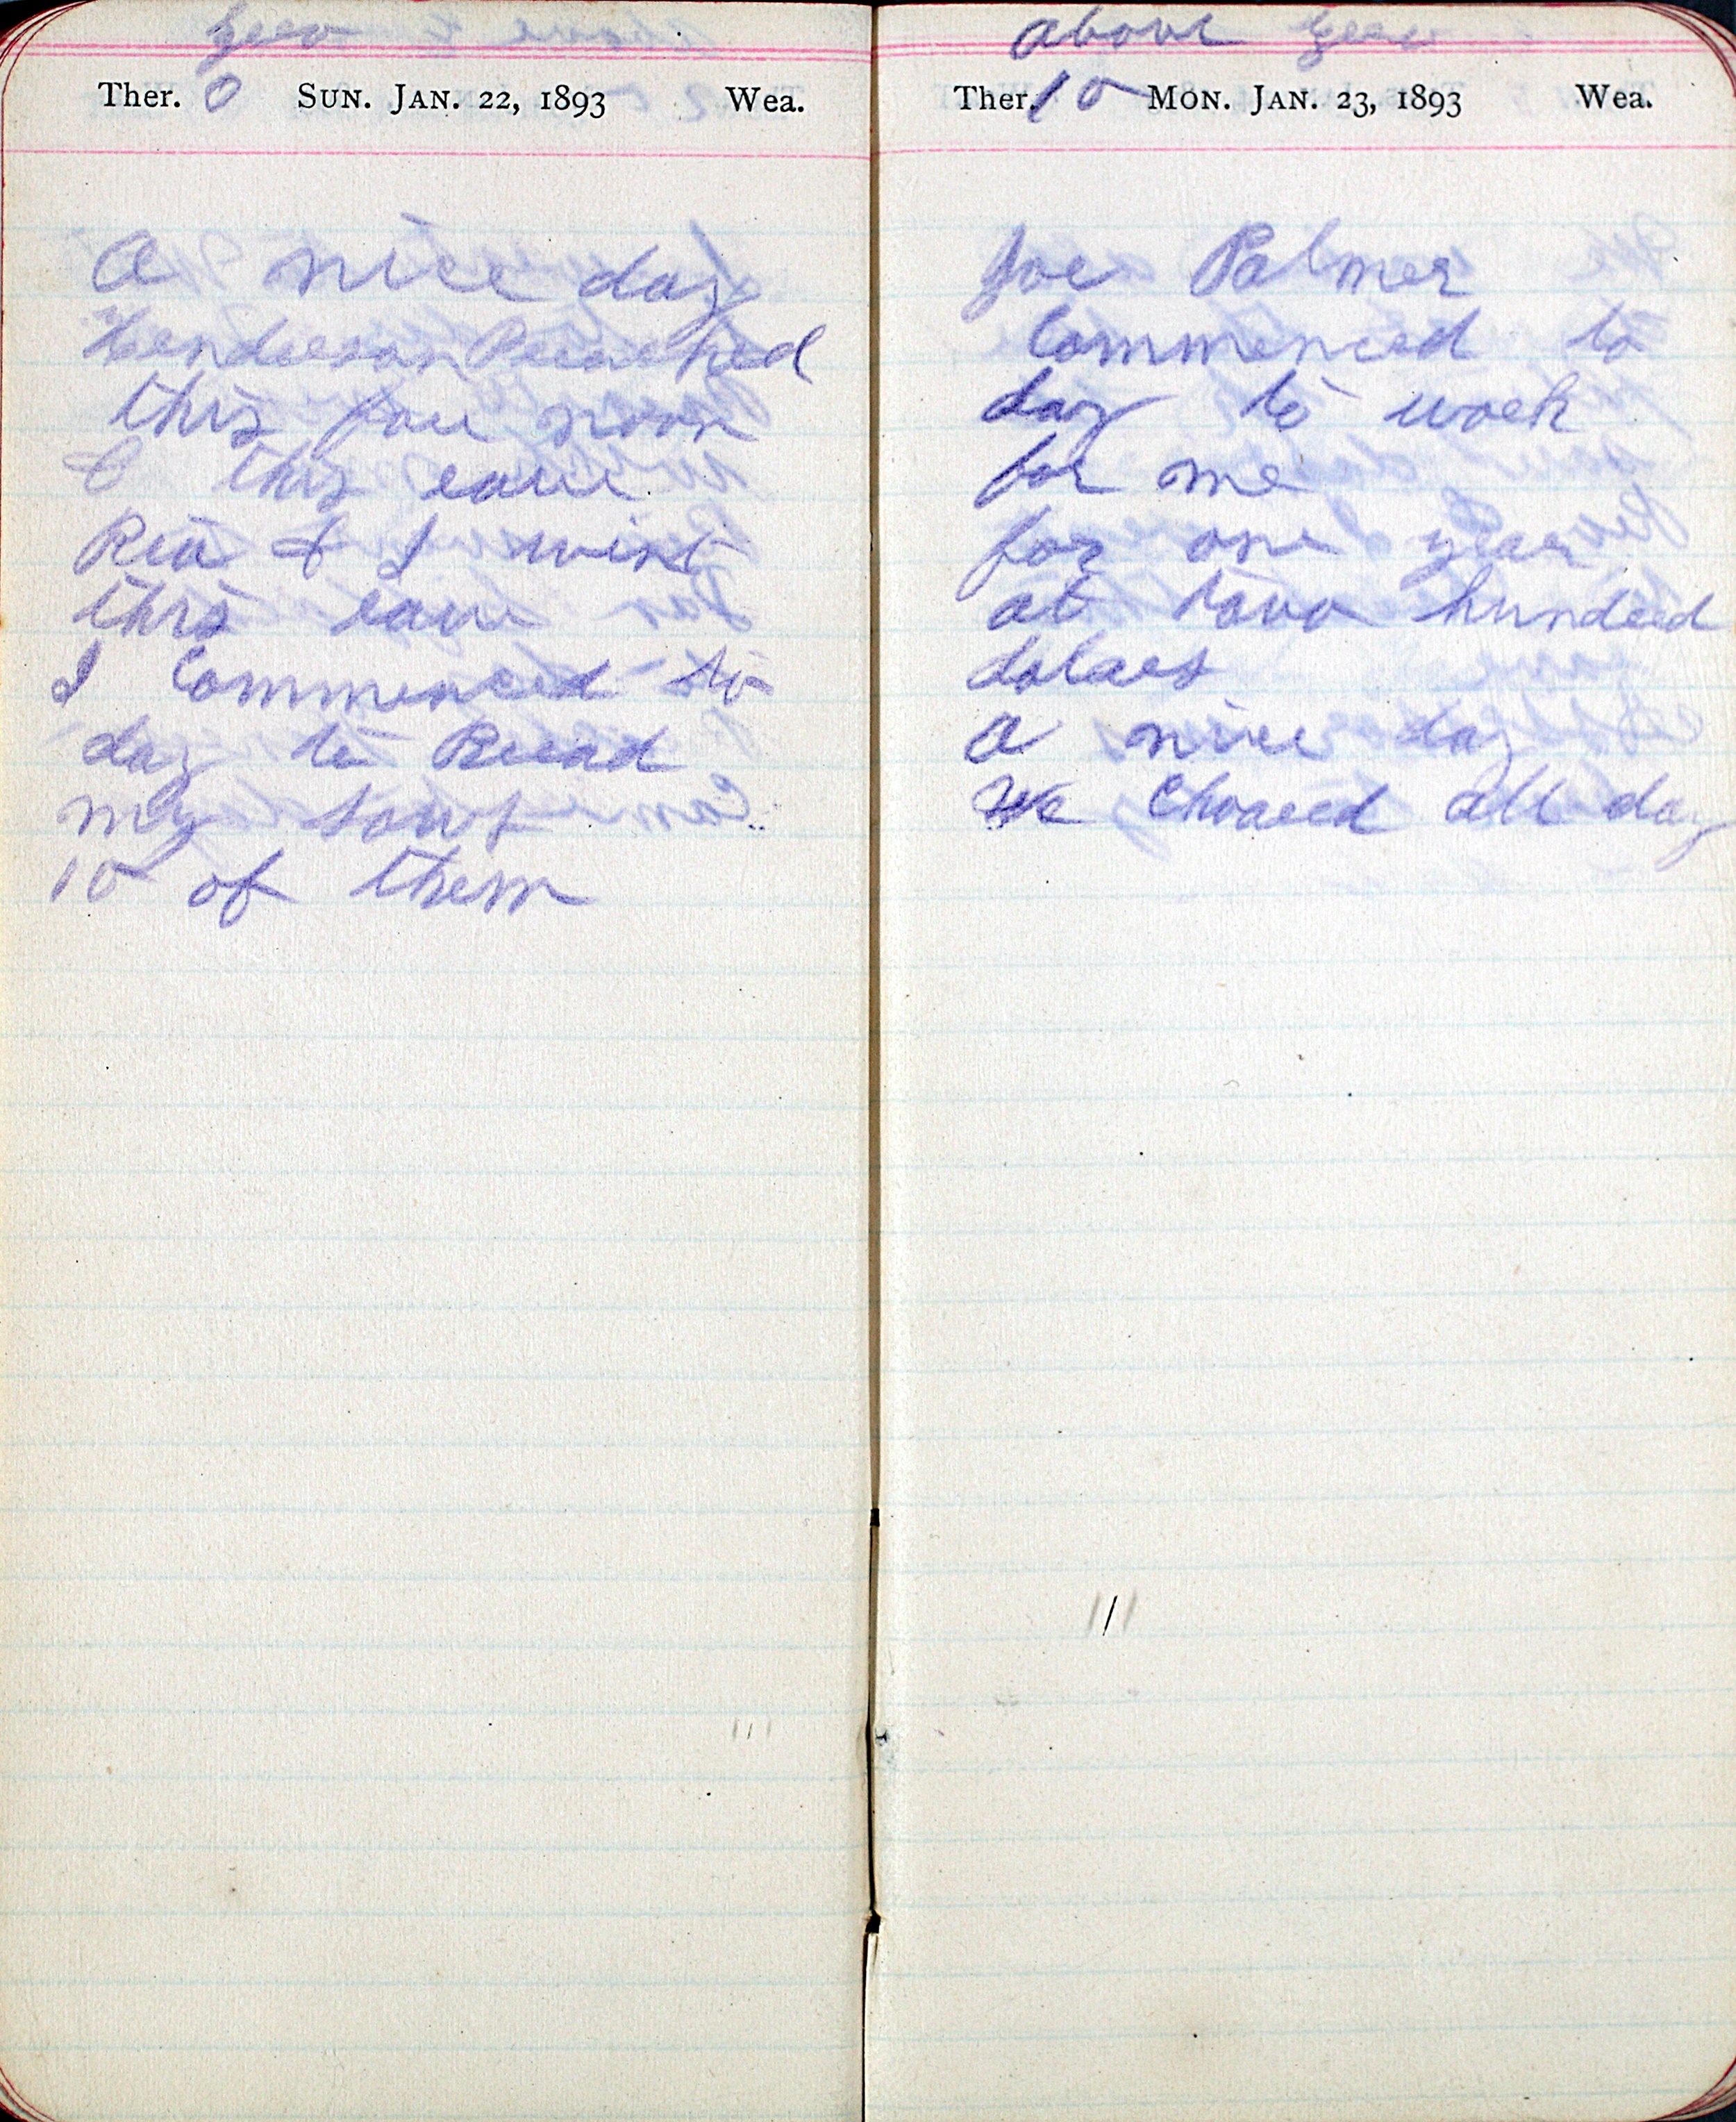 zero
Ther. 0 SUN. JAN. 22, 1893 Wea.
A nice day
Henderson Preached
this fore noon
& this eave
Ria & I went
this eave
I Commenced to
day to Bread
my sows
10 of them
above zero
Ther. 10 MON. JAN. 23, 1893 Wea.
Joe Palmer
Commenced to
day to work
for me
for one year
at towo hundred
dolars
A nice day
We Chored all day